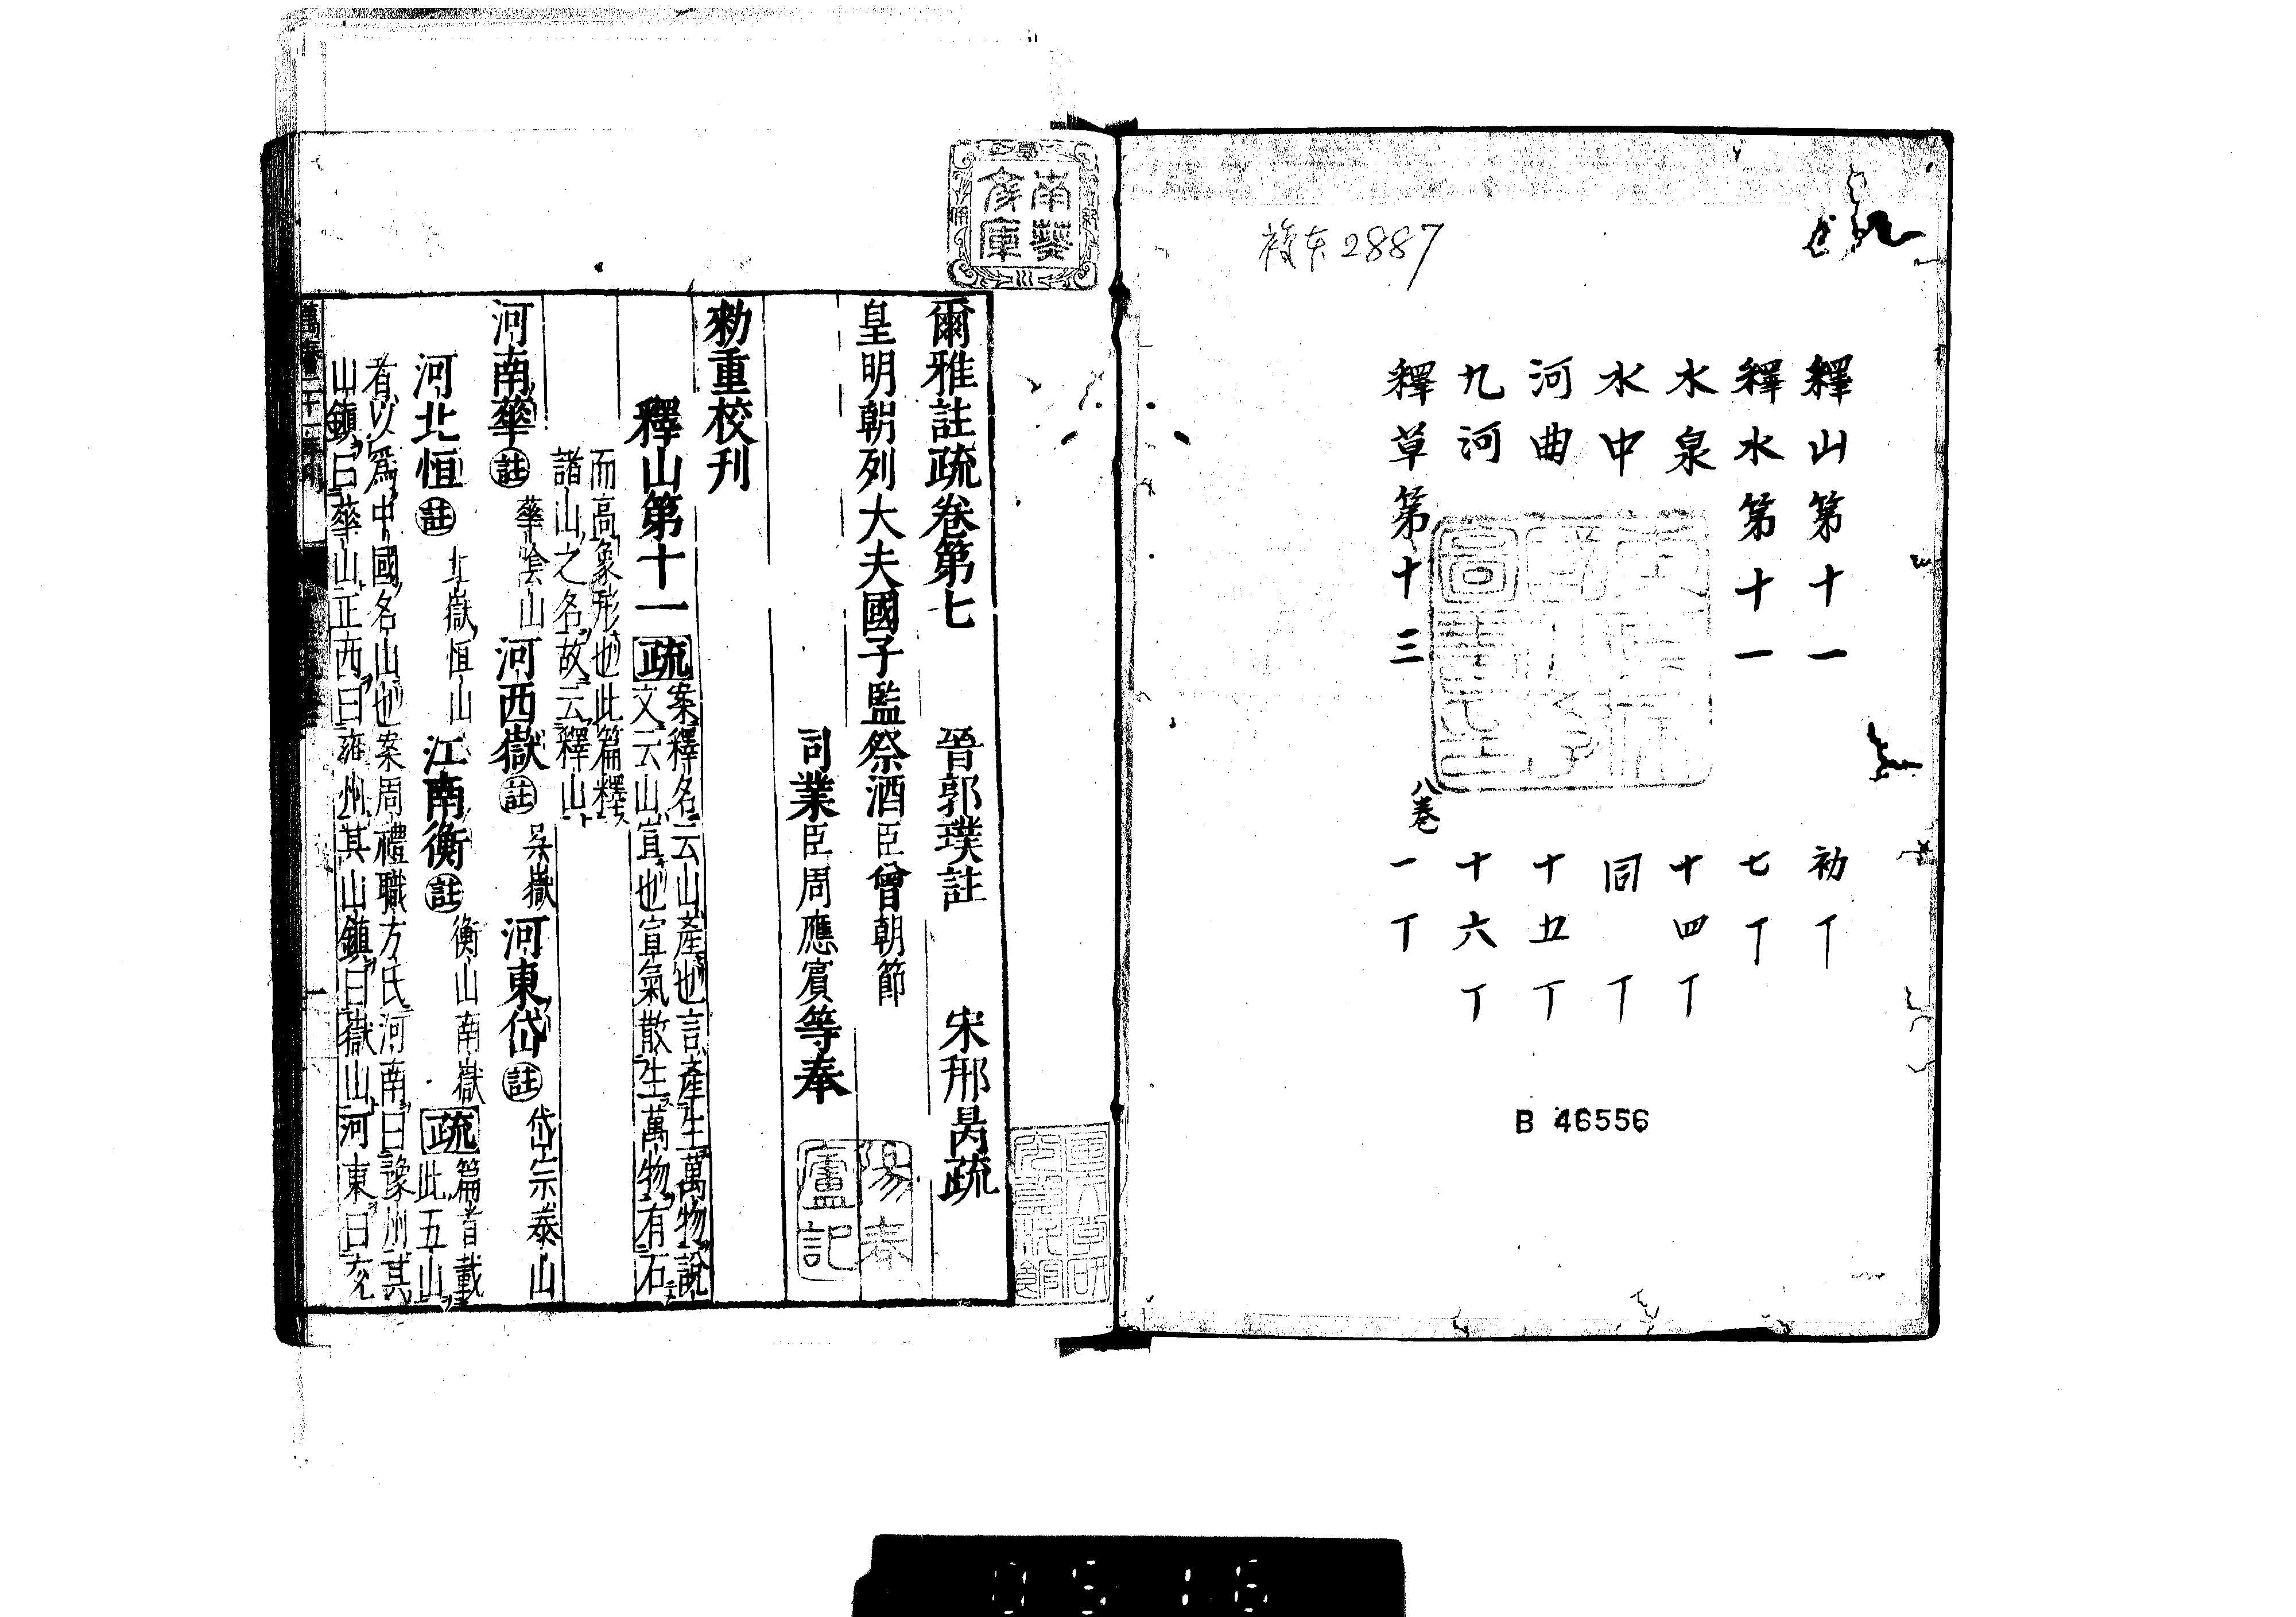 複本2887
釋山第十一 初丁
釋水第十一 七丁
水泉 十四丁
水中 同丁
河曲 十五丁
九河 十六丁
釋草第十三 八巻 一丁
B 46556
南葵文庫
爾雅註疏卷第七 晉郭璞註 宋邢昺疏
皇明朝列大夫國子監祭酒臣曾朝節
司業臣周應賓等奉
勑重校刊
釋山第十一 疏 案釋名云山產也言產生萬物說
文云山宣也宣氣散生萬物有石
而高象形也此篇釋
諸山之名故云釋山
河南華 註 華陰山 河西嶽 註 吳嶽 河東岱 註 岱宗泰山
河北恒 註 北嶽恒山 江南衡 註 衡山南嶽 疏 篇首載
此五山
者以爲中國名山也案周禮職方氏河南曰豫州其
山鎮曰華山正西曰雍州其山鎮曰嶽山河東曰兖
陽春廬記